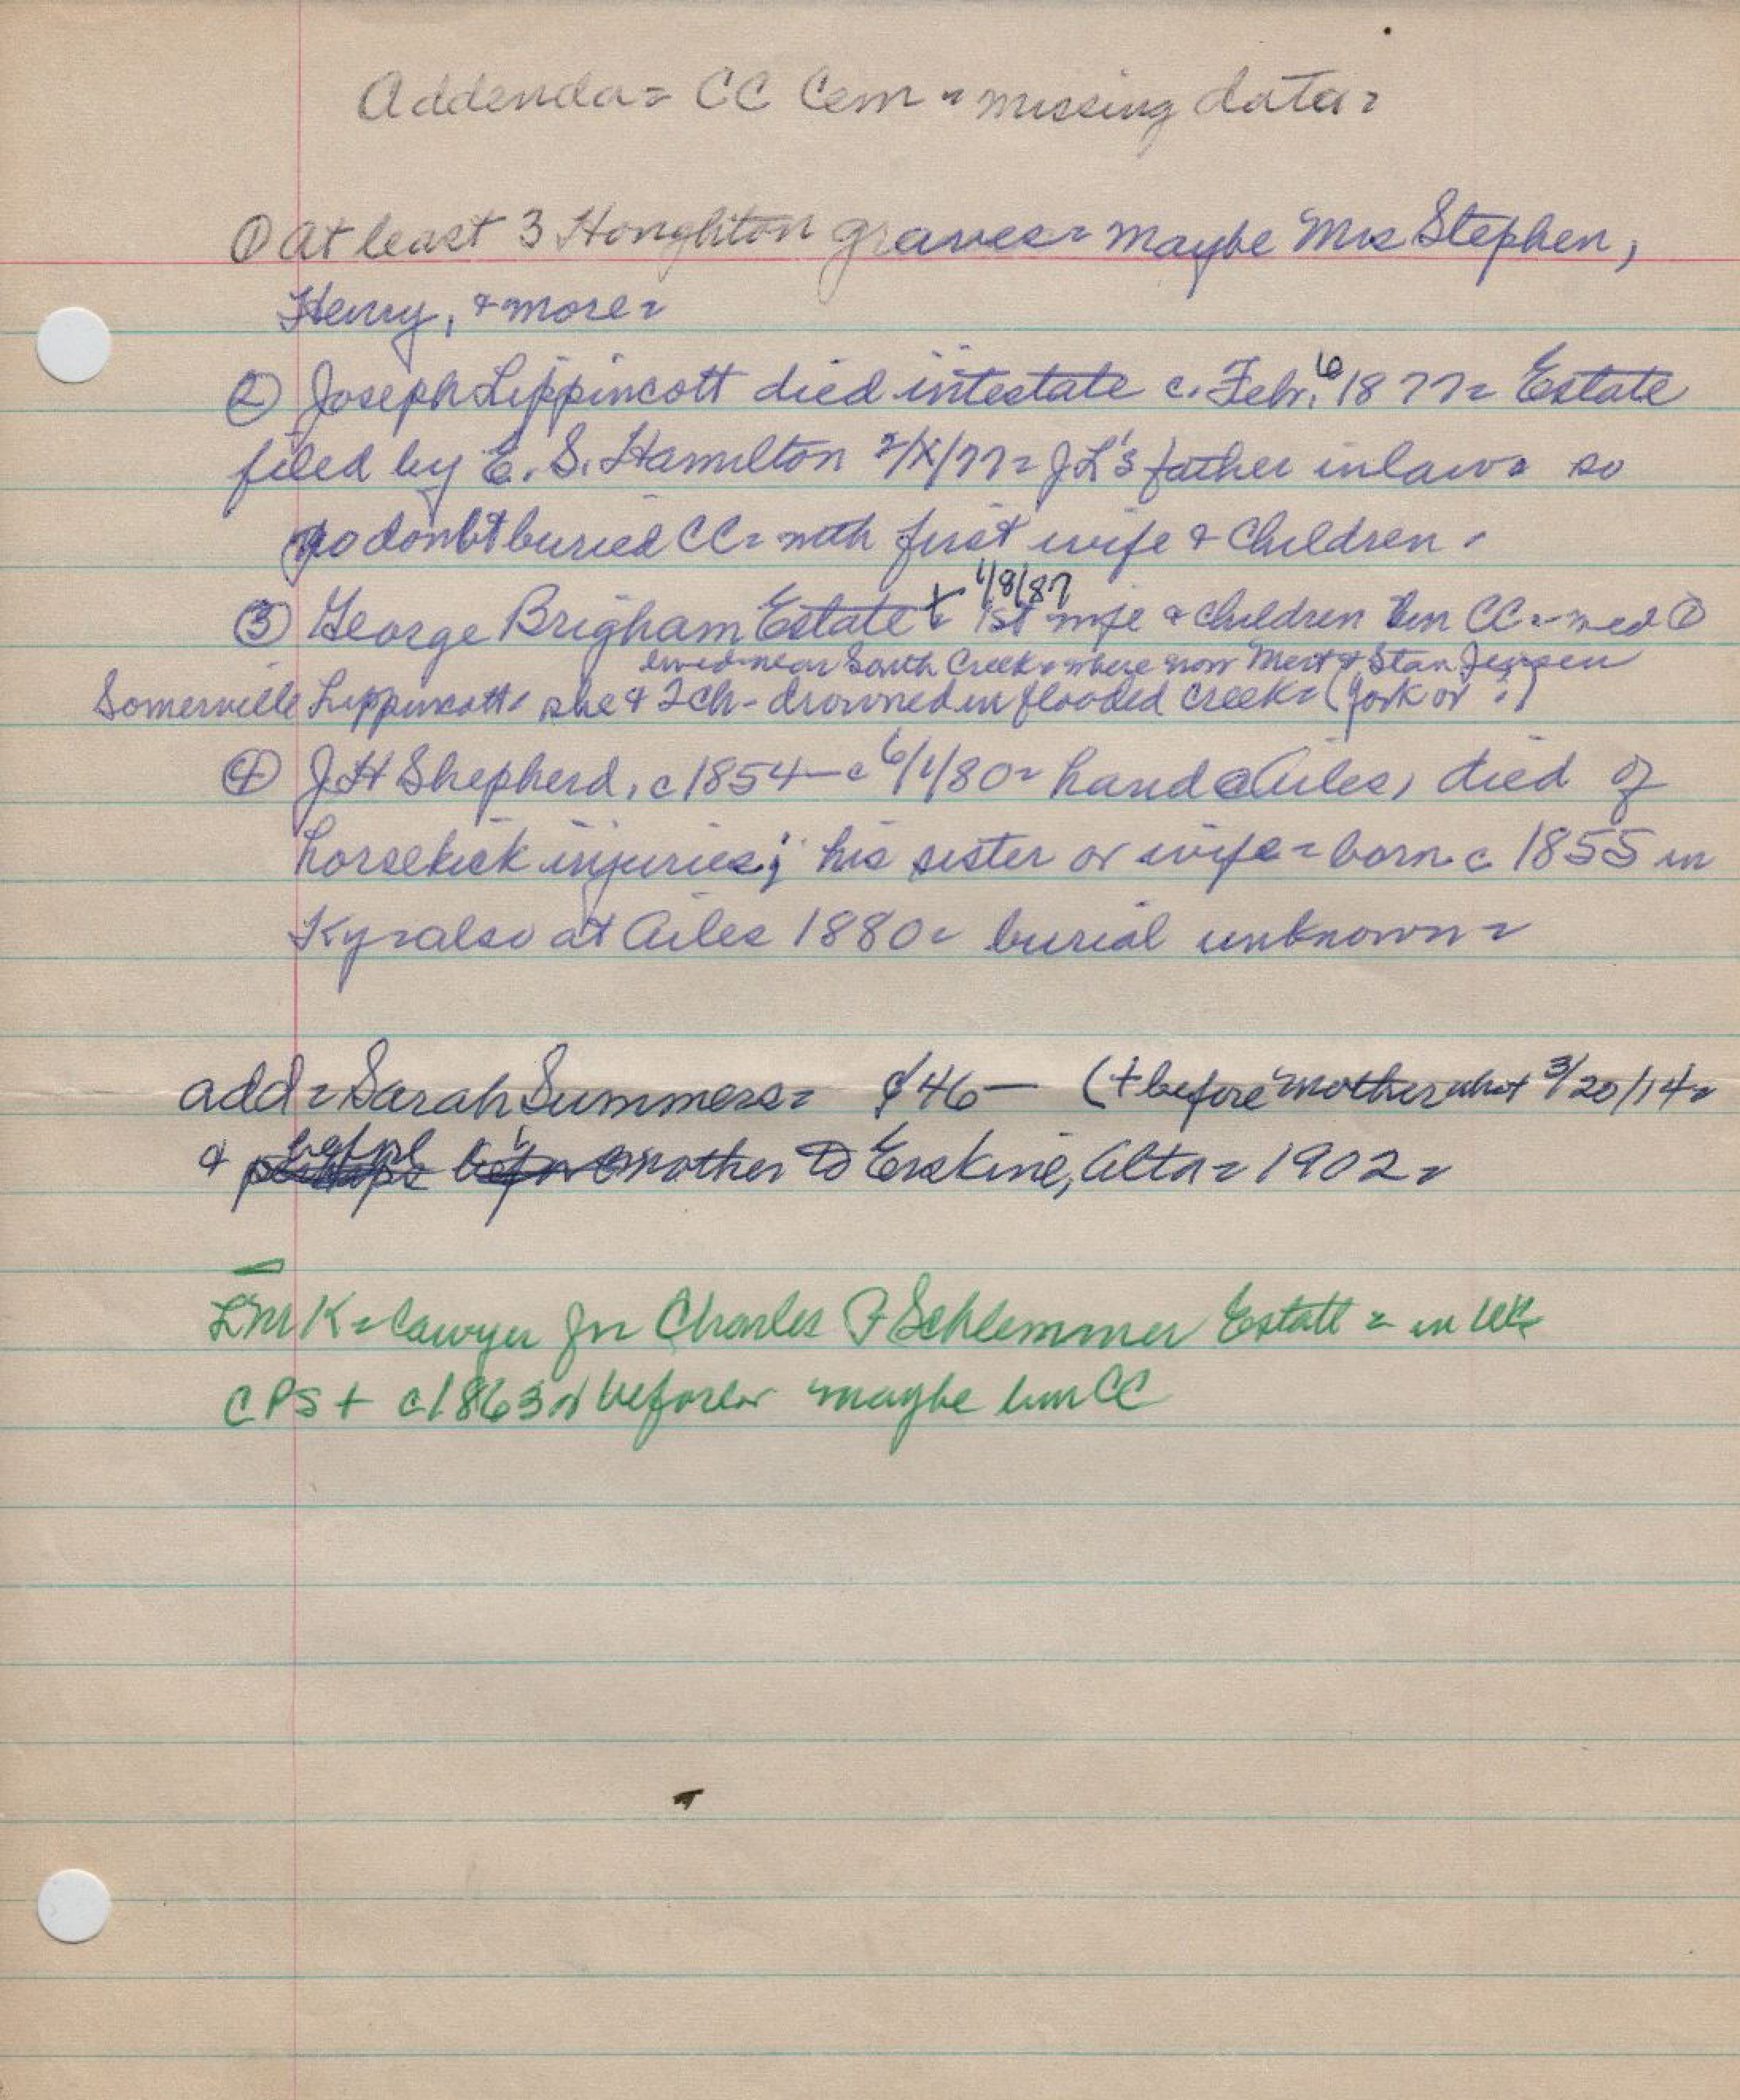 Addenda = CC Cem = missing data =
① At least 3 Houghton graves = maybe Mrs Stephen,
Henry, & more =
② Joseph Lippincott died intestate c. Febr. 6 1877 = Estate
filed by E. S. Hamilton 2/X/77 = JL's father inlaw = so
no doubt buried CC = with first wife & children =
③ George Brigham Estate + 1/8/87 1st wife & children CC =
lived near South Creek = where now Mert & Stan Jensen
Somerville Lippincott = she & 2 ch - drowned in flooded creek = (York or ?)
④ J H Shepherd, c 1854 - c 6/1/80 = hand @ Ailes, died of
horsekick injuries; his sister or wife = born c 1855 in
Ky = also at Ailes 1880 = burial unknown =
add = Sarah Summers = 46 — (+ before mother 3/20/14 =
& mother to Erskine, Alta = 1902 =
LMK = lawyer for Charles P Schlemmer Estate = in
CPS + c 1863 or before = maybe CC